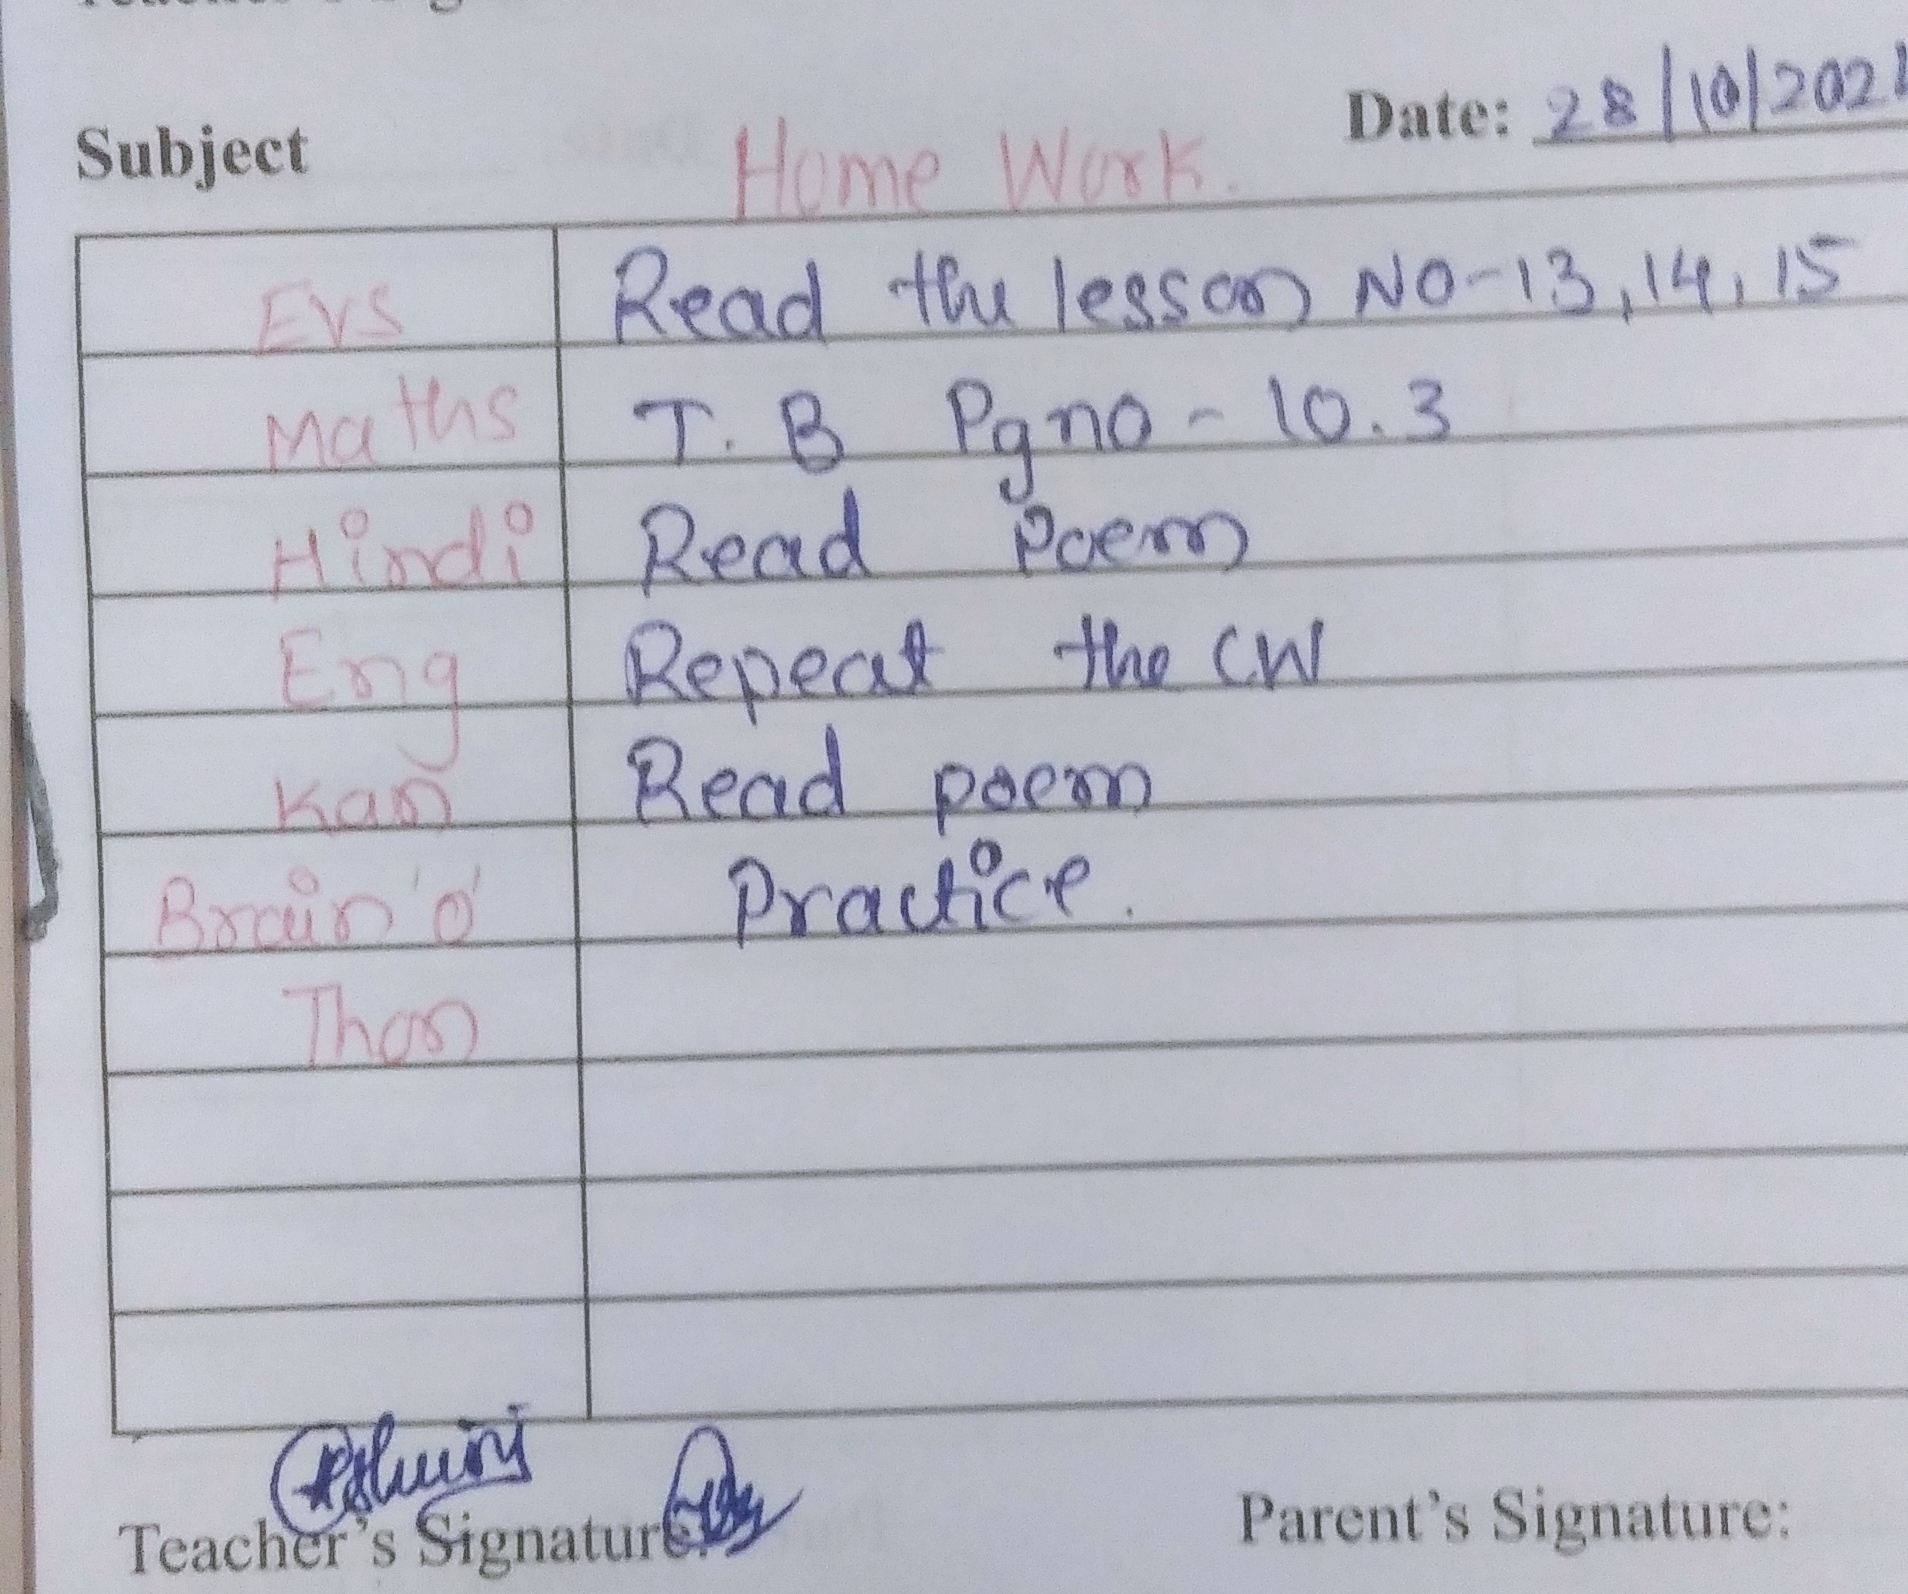 Subject
Home Work.
Date: 28/10/2021
Evs Read the lesson No-13, 14, 15
Maths T. B Pg no - 10.3
Hindi Read Poem
Eng Repeat the CW
Kan Read poem
Brain 'o' Practice.
Thon
Teacher's Signature:
Parent's Signature: